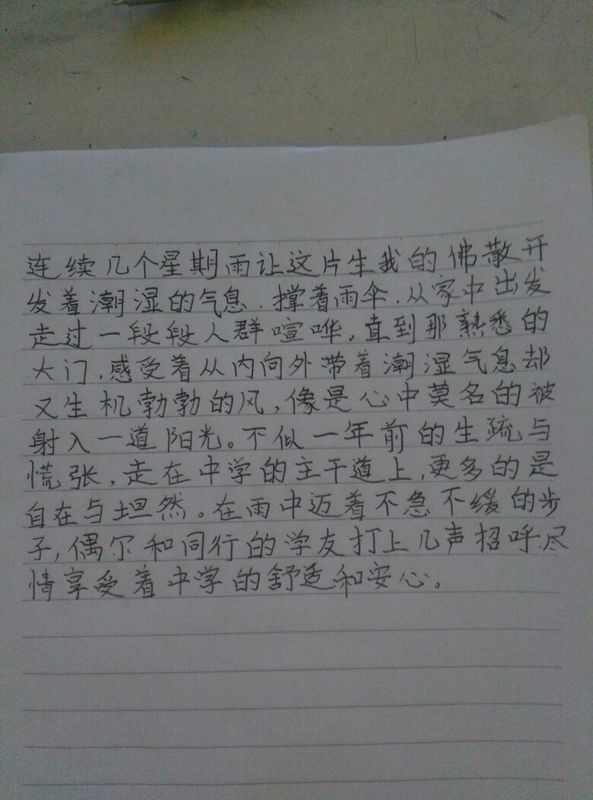 连续几个星期雨让这片生我的佛散开
发着潮湿的气息.撑着雨伞.从家中出发
走过一段段人群喧哗。直到那熟悉的
大门,感受着从内向外带着潮湿气息却
又生机勃勃的风,像是心中莫名的被
射入一道阳光。不似一年前的生疏与
慌张,走在中学的主干道上,更多的是
自在与坦然。在雨中迈着不急不缓的步
子,偶尔和同行的学友打上几声招呼.尽
情享受着中学的舒适和安心。